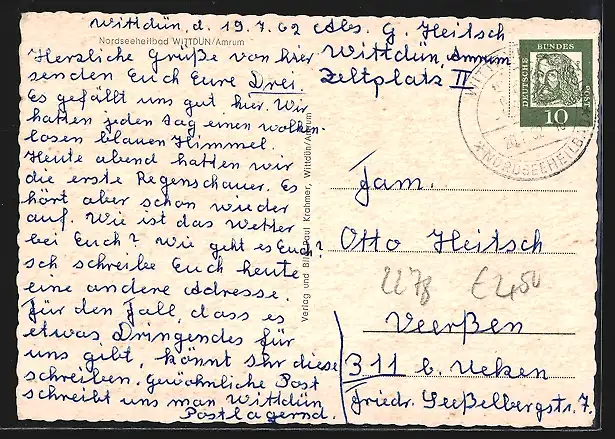 Wittdün, d. 19.7.62 Abs. G. Heitsch
Nordseeheilbad WITTDÜN/Amrum
Wittdün, Amrum
Zeltplatz II
Herzliche Grüße von hier
senden Euch Eure Drei.
Es gefällt uns gut hier. Wir
hatten jeden Tag einen wolken-
losen blauen Himmel.
Heute abend hatten wir
die erste Regenschauer. Es
hört aber schon wieder
auf. Wie ist das Wetter
bei Euch? Wie geht es Euch?
Ich schreibe Euch heute
eine andere Adresse.
Für den Fall, dass es
etwas Dringendes für
uns gibt, könnt Ihr diese
schreiben. Gewöhnliche Post
schreibt uns man Wittdün
Postlagernd.
Verlag und Bild: Paul Krahmer, Wittdün/Amrum
DEUTSCHE BUNDESPOST
10
NORDSEEHEILB
Fam.
Otto Heitsch
2278 € 2,50
Veerßen
311 b. Uelzen
Friedr. Seeßelbergstr. 7.